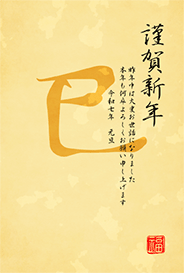 謹賀新年
昨年中は大変お世話になりました
本年も何卒よろしくお願い申し上げます
令和七年 元旦
巳
福